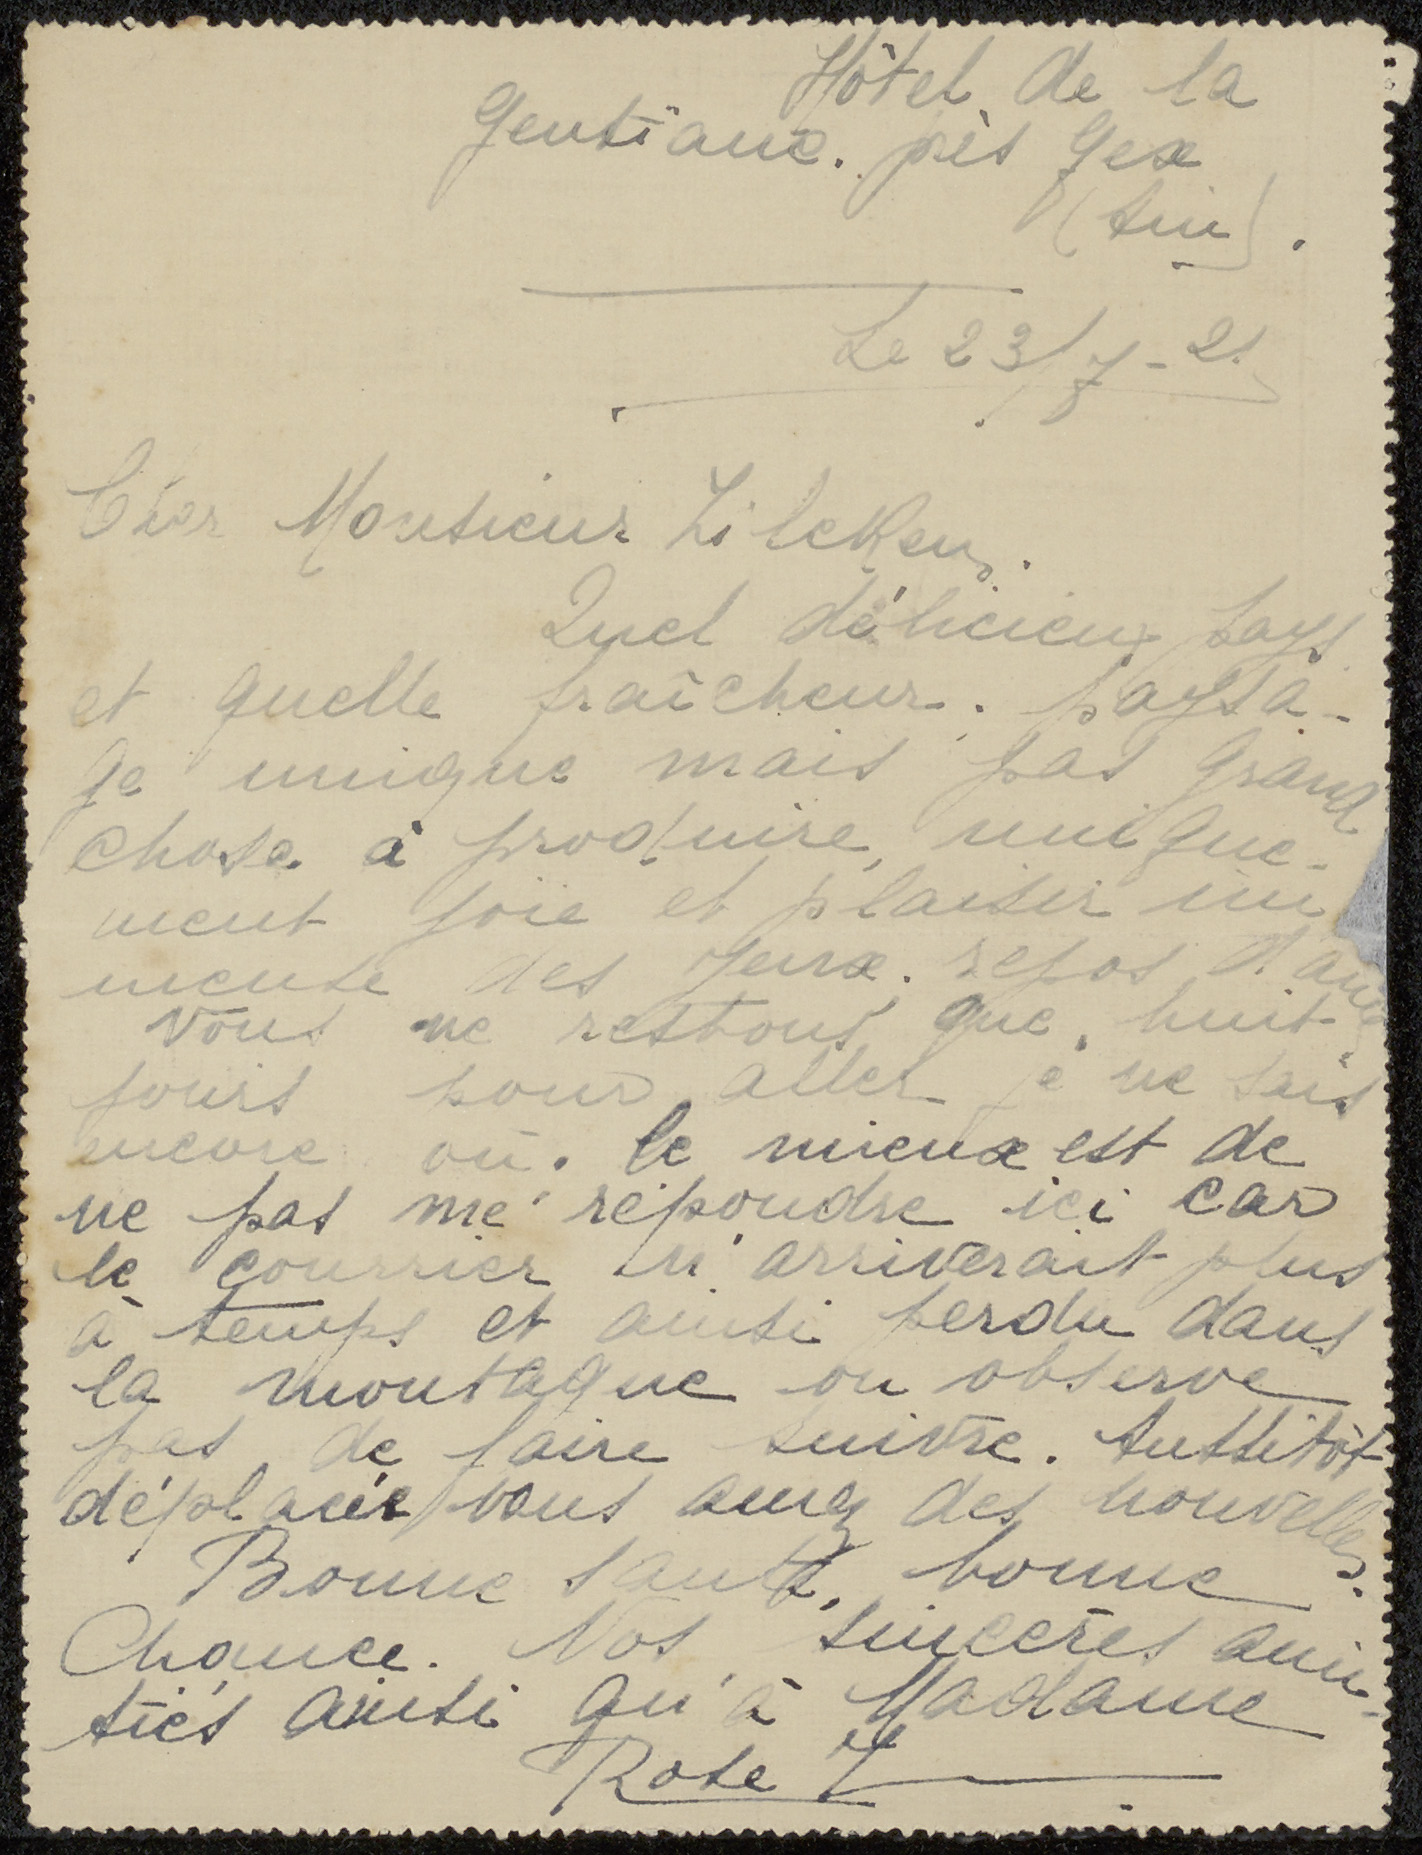 Hôtel de la
Gentiane. près Gex
(Ain).
Le 23/7-21.
Cher Monsieur Zilcken.
Quel délicieux pays
et quelle fraîcheur. paysa-
ge unique mais pas grand
chose à produire, unique-
ment joie et plaisir im
mense des yeux. repos d'âme
Nous ne restons que huit
jours pour aller je ne sais
encore où. le mieux est de
ne pas me répondre ici car
le courrier n'arriverait plus
à temps et ainsi perdu dans
la montagne on observe
pas de faire suivre. Aussitôt
déplacée vous aurez des nouvelles.
Bonne santé, bonne
Chance. Nos sincères ami-
tiés ainsi qu'à Madame
Rose Z